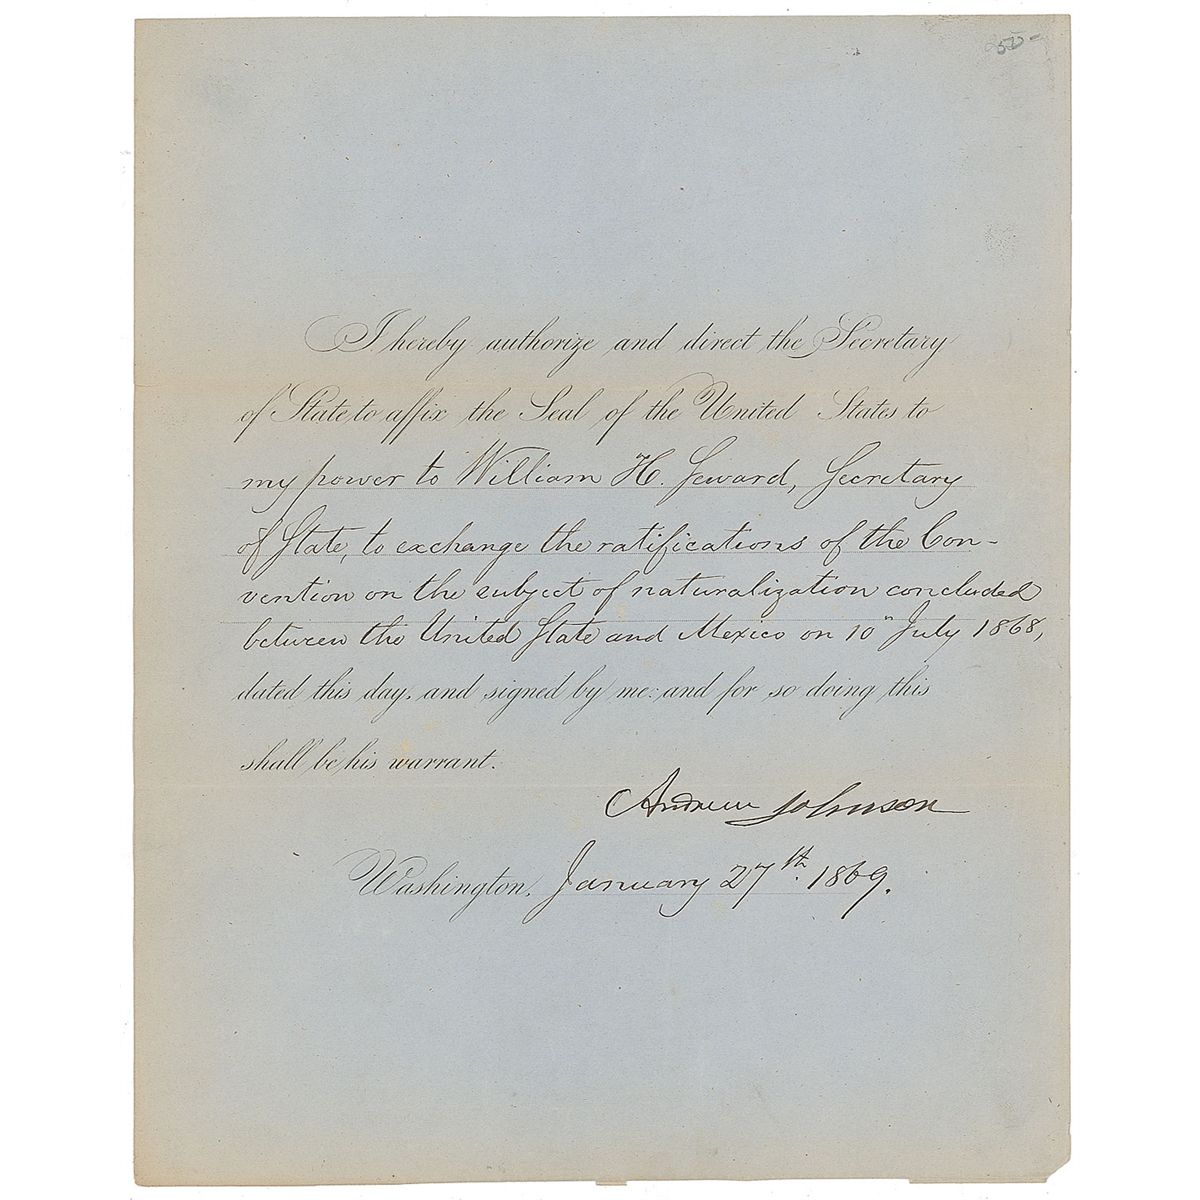 I hereby authorize and direct the Secretary
of State to affix the Seal of the United States to
my power to William H. Seward, Secretary
of State, to exchange the ratifications of the Con-
vention on the subject of naturalization concluded
between the United State and Mexico on 10" July 1868,
dated this day, and signed by me: and for so doing this
shall be his warrant.
Andrew Johnson
Washington, January 27th. 1869.